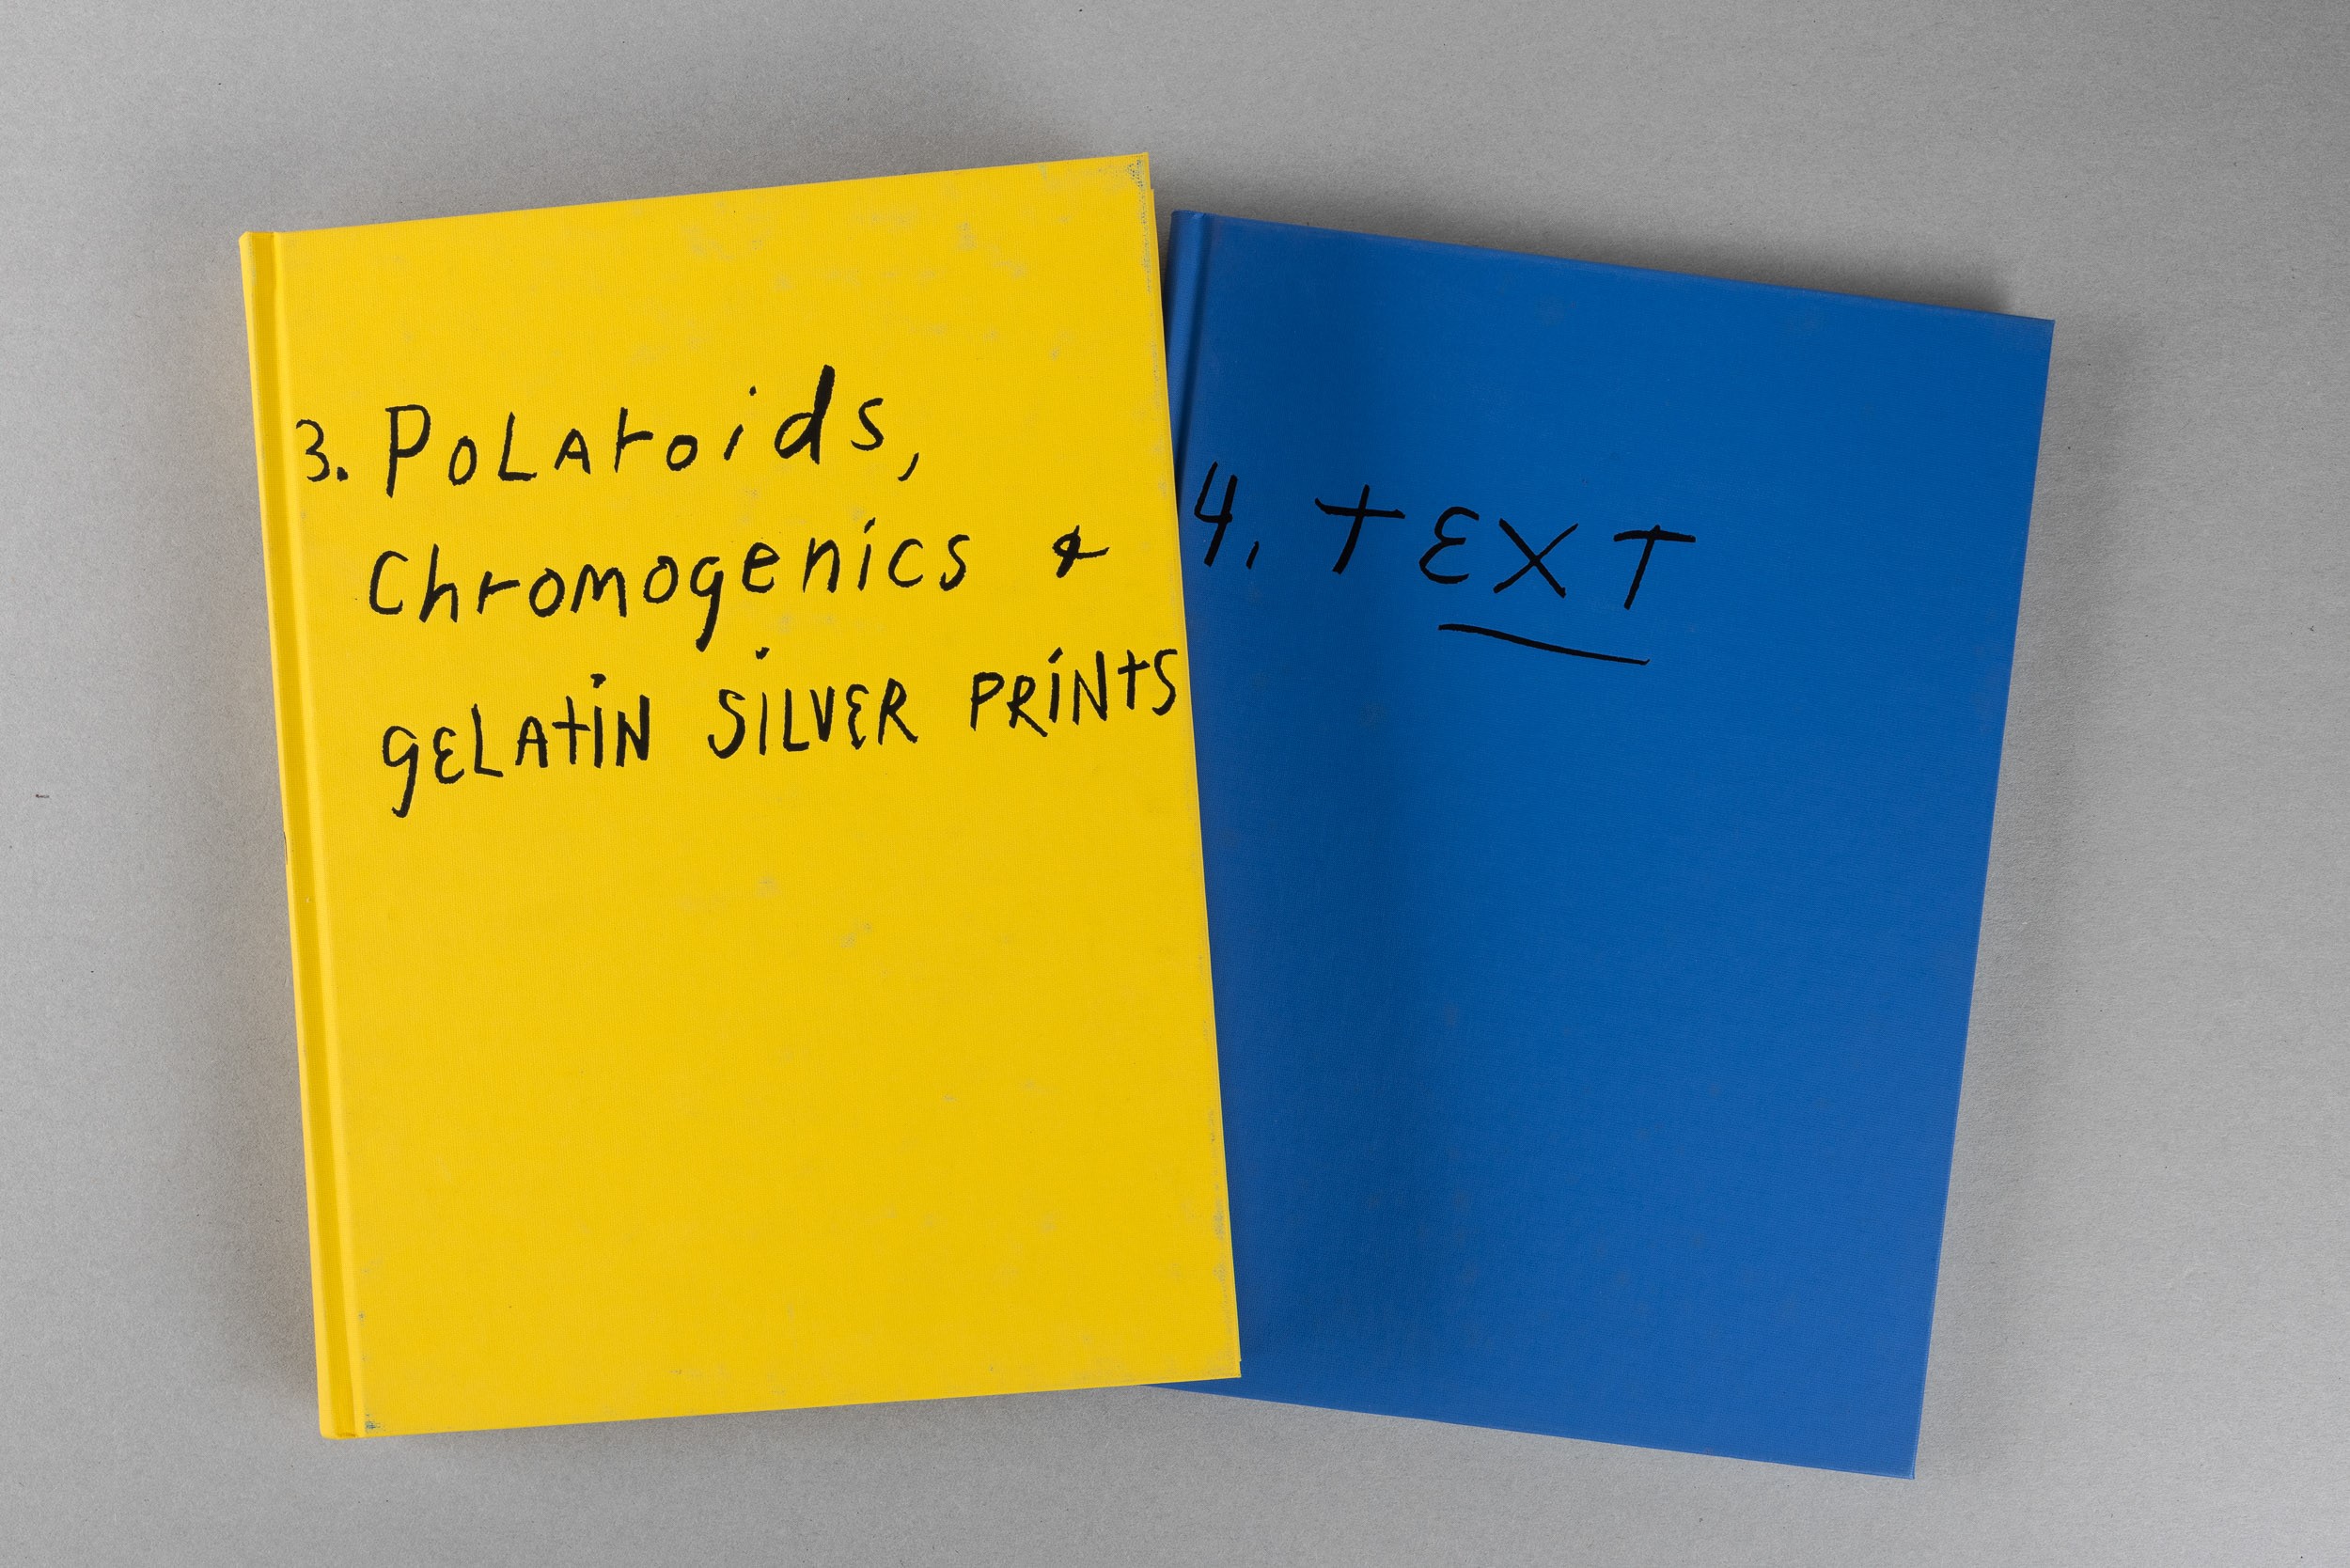 3. PoLAroids,
Chromogenics &
gELAtiN SiLVER PRiNtS
4. tEXT